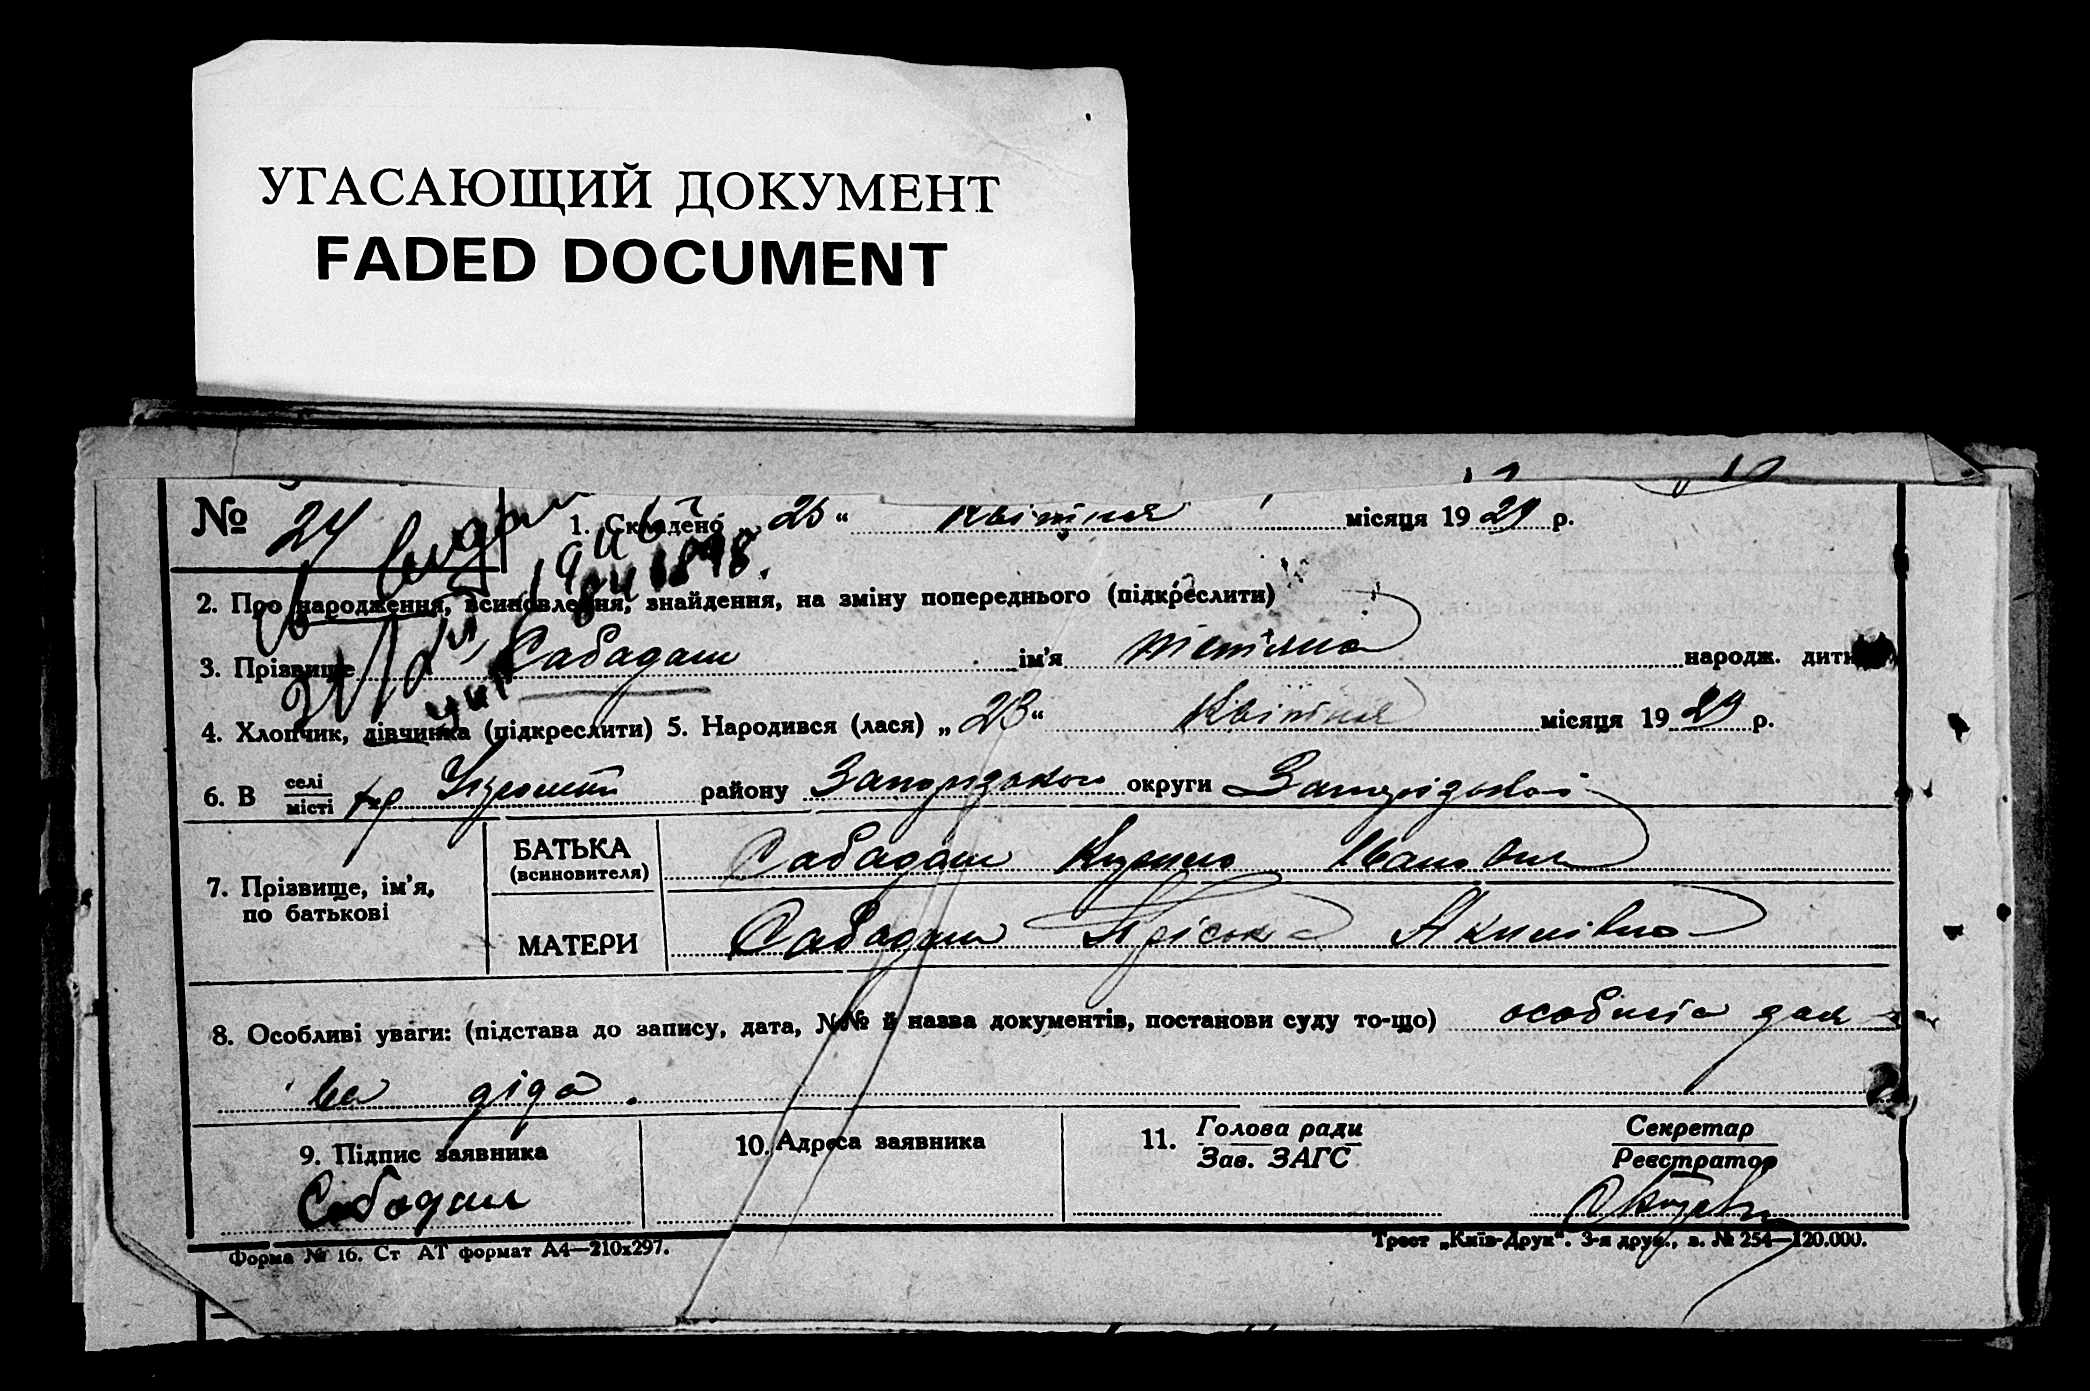 УГАСАЮЩИЙ ДОКУМЕНТ
FADED DOCUMENT
№ 24
1. Складено „ 25 “ квітня місяця 19 29 р.
2. Про народження, всиновлення, знайдення, на зміну попереднього (підкреслити)
3. Прізвище Сабадаш ім'я народж.
4. Хлопчик, дівчинка (підкреслити) 5. Народився (лася) „ 23 “ квітня місяця 19 29 р.
6. В селі / місті району Запорізького округи Запорізької
7. Прізвище, ім'я, по батькові
БАТЬКА (всиновителя) Сабадаш Кузьма Іванович
МАТЕРИ Сабадаш Пріська Акимівна
8. Особливі уваги: (підстава до запису, дата, №№ й назва документів, постанови суду то-що) особиста зая
ва діда.
9. Підпис заявника
Сабадаш
10. Адреса заявника
11. Голова ради / Зав. ЗАГС
Секретар / Реєстратор
Форма № 16. Ст АТ формат А4—210х297.
Трест „Київ-Друк“. 3-я друк., з. № 254—120.000.